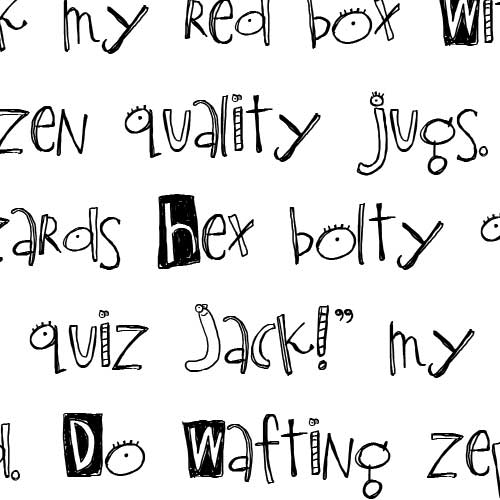 k my red box wit
zen quality jugs.
zards hex bolty o
quiz Jack!” my
d. Do Wafting zep